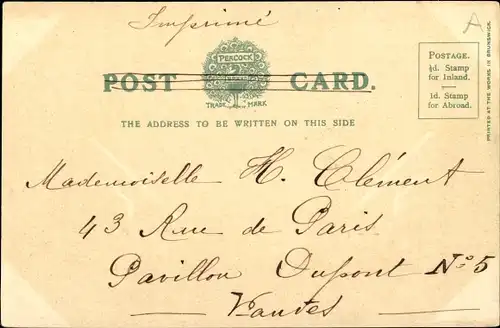 Imprimé
A
PEACOCK
POST CARD.
TRADE MARK
POSTAGE.
½d. Stamp
for Inland.
1d. Stamp
for Abroad.
PRINTED AT THE WORKS IN BRUNSWICK.
THE ADDRESS TO BE WRITTEN ON THIS SIDE
Mademoiselle H. Clément
43 Rue de Paris
Pavillon Dupont No. 5
Vanves